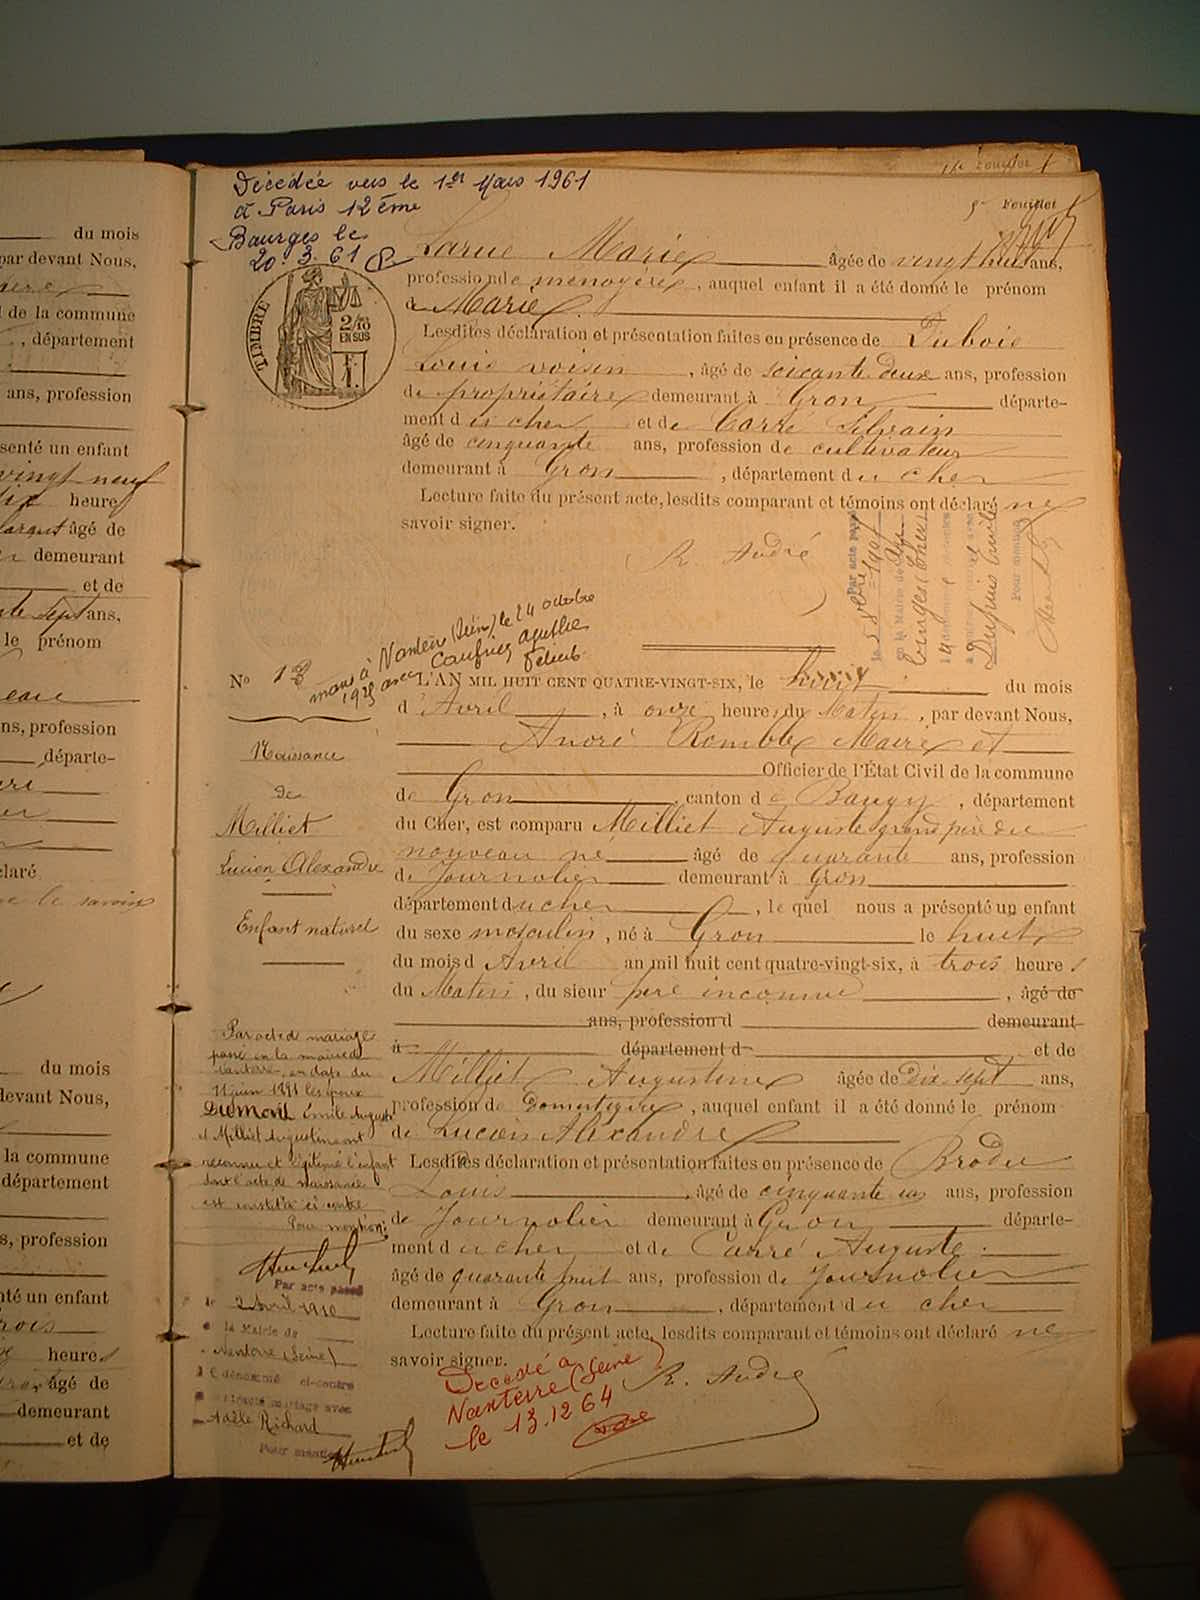 du mois
par devant Nous,
de la commune
, département
ans, profession
senté un enfant
vingt neuf
dix heures
âgé de
demeurant
et de
sept ans,
le prénom
ans, profession
départe-
claré
savoir
du mois
devant Nous,
la commune
département
s, profession
nté un enfant
trois
heures
âgé de
demeurant
et de
5e Feuillet
Décédée vers le 1er Mars 1961
à Paris 12ème
Bourges le
20.3.61
TIMBRE
2/10
EN SUS
F.
1.
Larue Marie âgée de vingt huit ans,
profession de ménagère, auquel enfant il a été donné le prénom
de Marie.
Lesdites déclaration et présentation faites en présence de Dubois
Louis voisin, âgé de soixante deux ans, profession
de propriétaire demeurant à Gron départe-
ment du cher et de Carré Silvain
âgé de cinquante ans, profession de cultivateur
demeurant à Gron, département du cher
Lecture faite du présent acte, lesdits comparant et témoins ont déclaré ne
savoir signer.
R. André
Par acte passé
en la Mairie de
(Cher)
Dupuis Emile
Pour mention
marié à Nanterre (Seine) le 24 octobre
1925 avec
No 13
Naissance
de
Milliet
Lucien Alexandre
Enfant naturel
L'AN MIL HUIT CENT QUATRE-VINGT-SIX, le huit du mois
d'Avril, à onze heures du Matin, par devant Nous,
André Maire et
Officier de l'État Civil de la commune
de Gron, canton de Baugy, département
du Cher, est comparu Milliet Auguste grand père du
nouveau né âgé de quarante ans, profession
de Journalier demeurant à Gron
département du cher, lequel nous a présenté un enfant
du sexe masculin, né à Gron le huit
du mois d'Avril an mil huit cent quatre-vingt-six, à trois heures
du Matin, du sieur père inconnu, âgé de
ans, profession d demeurant
à département d et de
Milliet Augustine âgée de Dix sept ans,
profession de Domestique, auquel enfant il a été donné le prénom
de Lucien Alexandre
Lesdites déclaration et présentation faites en présence de Brodu
Louis, âgé de cinquante ans, profession
de Journalier demeurant à Gron départe-
ment du cher et de Carré Auguste
âgé de quarante huit ans, profession de Journalier
demeurant à Gron, département du cher
Lecture faite du présent acte, lesdits comparant et témoins ont déclaré ne
savoir signer.
R. André
Par acte de mariage
passé en la mairie de
Nanterre, en date du
11 juin 1891 les époux
Dumont Emile Auguste
et Milliet Augustine ont
reconnu et légitimé l'enfant
dont l'acte de naissance
est constaté ci contre
Pour mention:
Par acte passé
le 2 Avril 1910
à la Mairie de
Nanterre (Seine)
dénommé ci-contre
mariage avec
Adèle Richard
Pour mention
Décédé à
Nanterre (Seine)
le 13.12.64